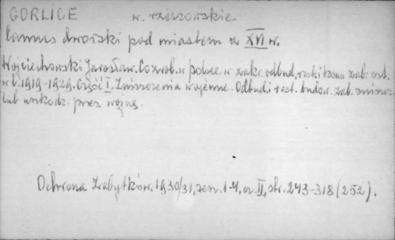 GORLICE w. rzeszowskie
lamus dworski pod miastem z XVI w.
Wojciechowski Jarosław. Co zrob. w Polsce w zakr. odbud. resti kons. zab. arch.
w l. 1919-1929. Część I. Zniszczenia wojenne. Odbud. i rest. budow. zab. zniszcz.
lub uszkodz. przez wojnę.
Ochrona Zabytków. 1930/31, zesz. 1-4, cz. II, str. 243-318 (252).